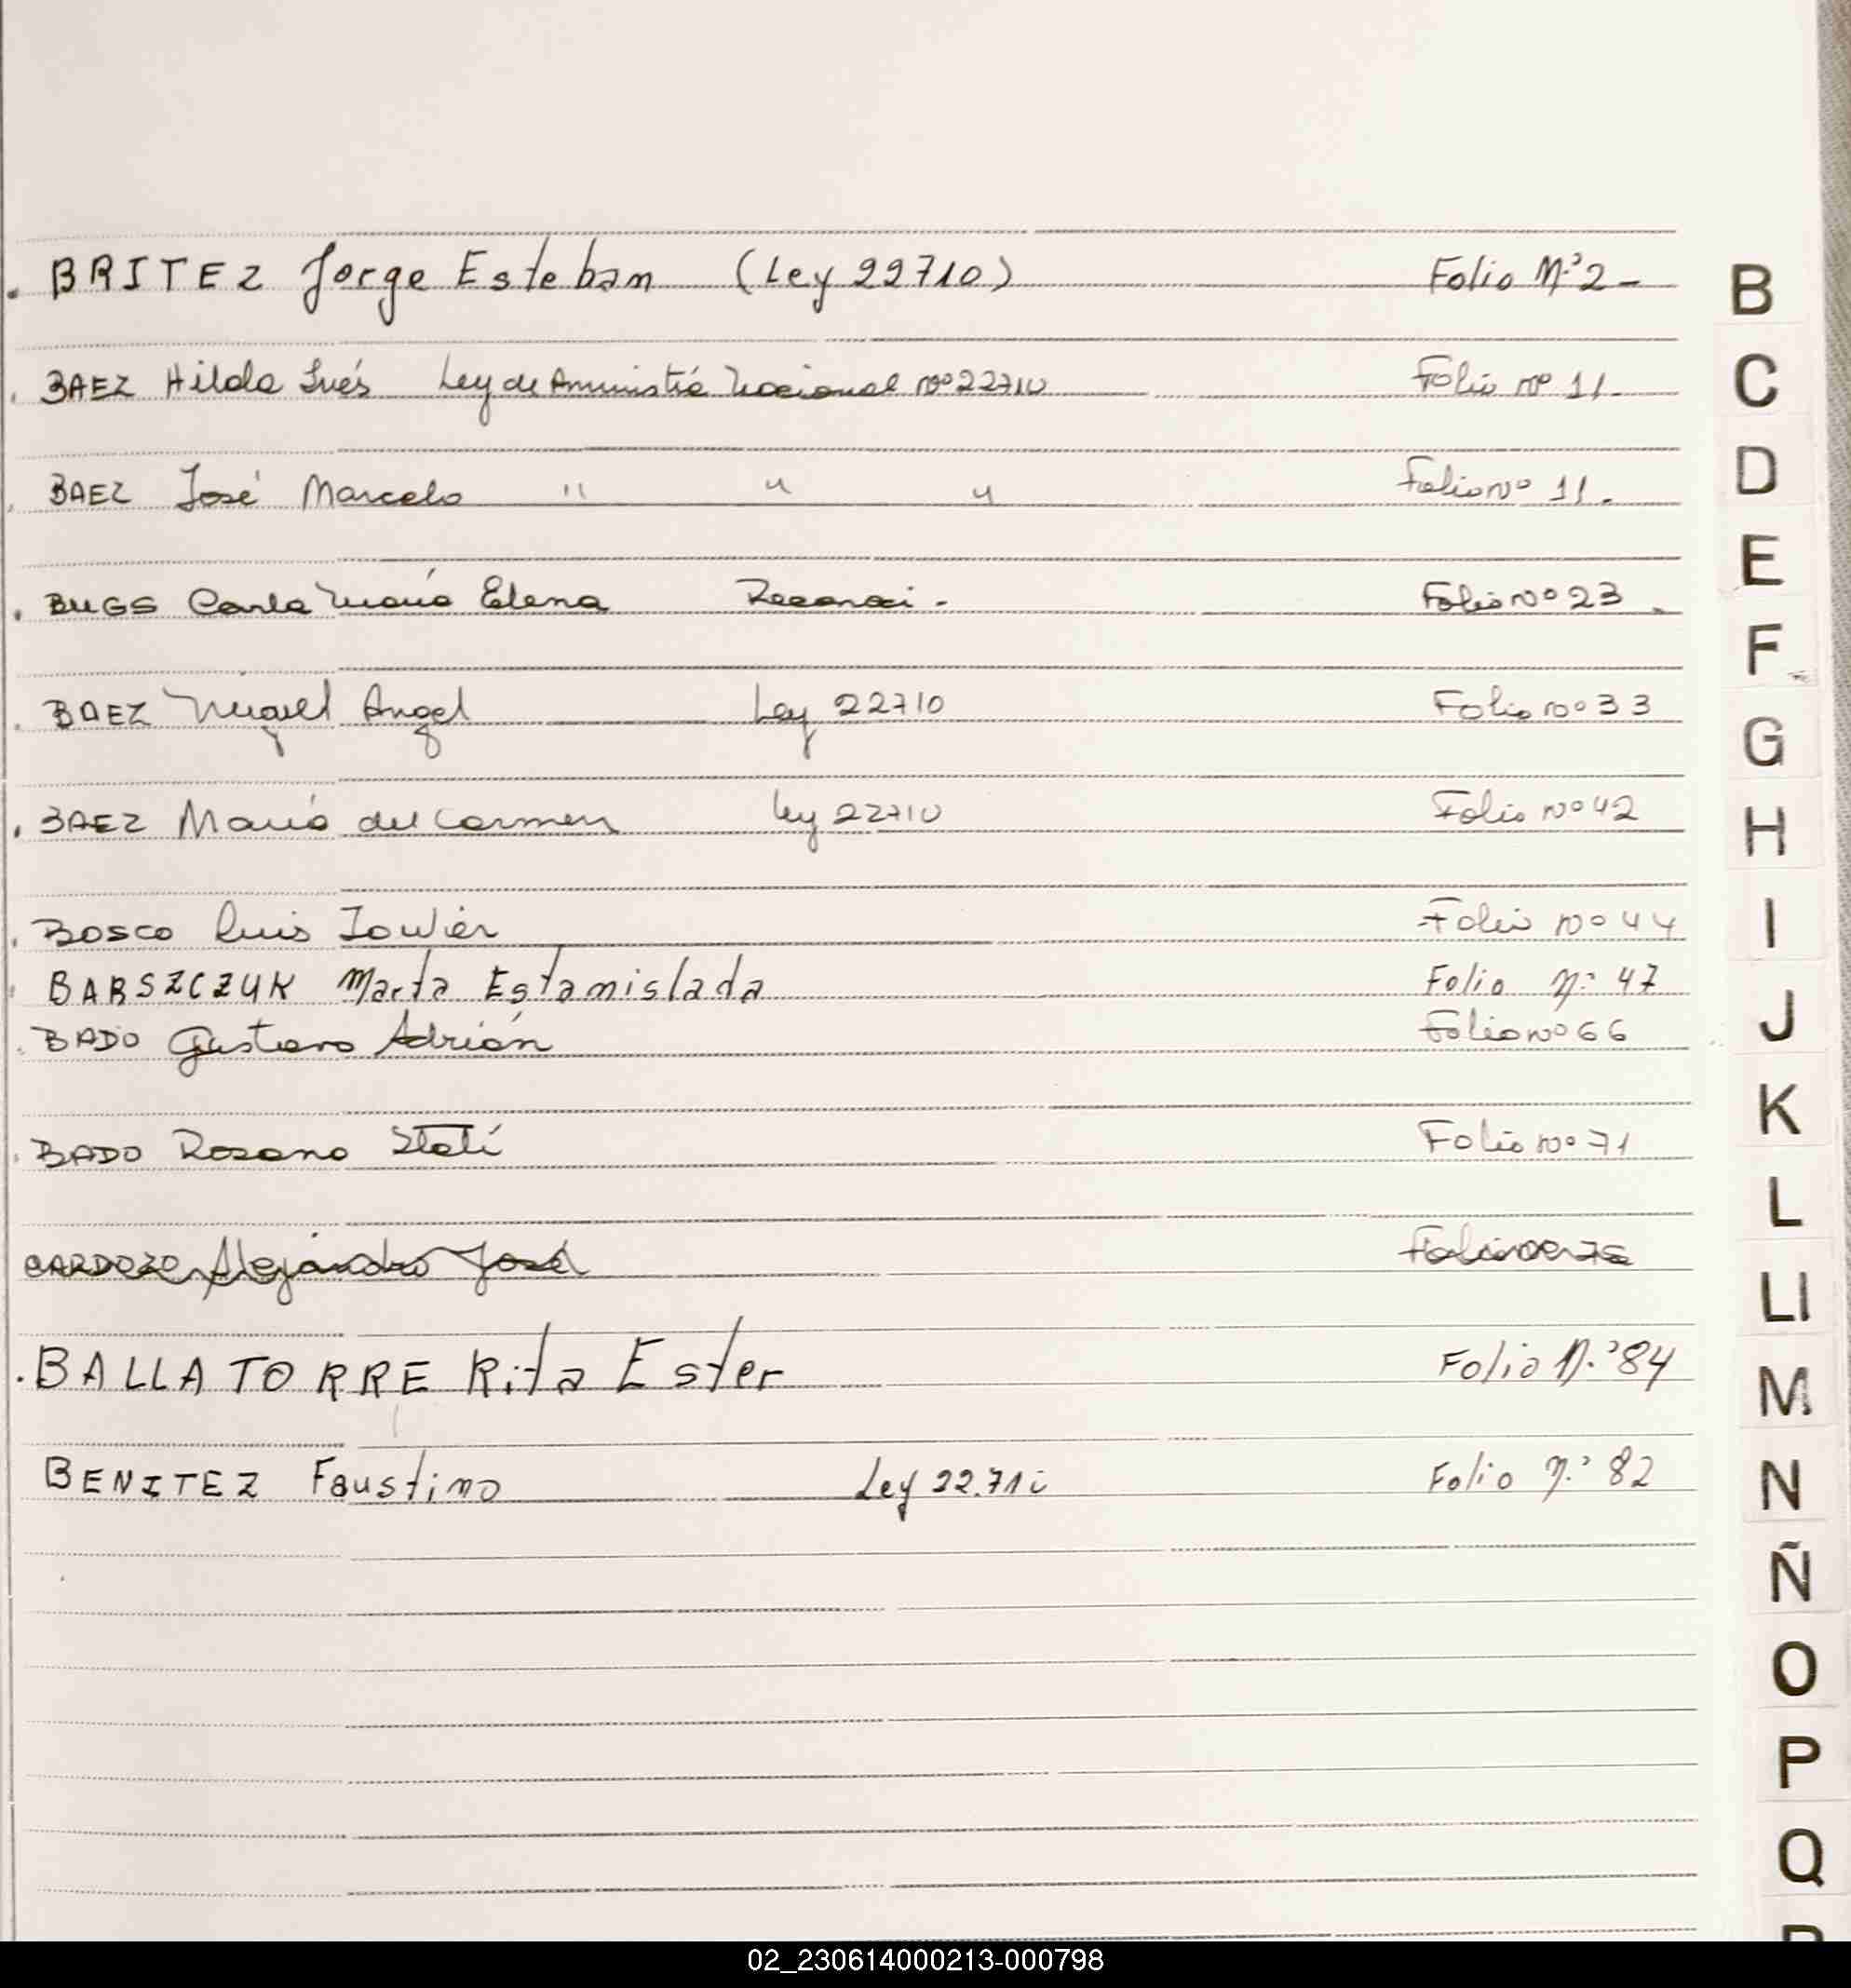 . BRITEZ Jorge Esteban (Ley 22710) Folio N.º 2-
. BAEZ Hilda Inés Ley de Amnistía Nacional Nº 22710 Folio Nº 11.
. BAEZ José Marcelo " " " Folio Nº 11.
. BUGS Carla María Elena Reconoci. Folio Nº 23.
. BAEZ Miguel Angel Ley 22710 Folio Nº 33
. BAEZ María del Carmen Ley 22710 Folio Nº 42
. BOSCO Luis Javier Folio Nº 44
. BARSZCZUK Marta Estanislada Folio N.º 47
. BADO Gustavo Adrián Folio Nº 66
. BADO Rosana Itatí Folio Nº 71
CARDOZO Alejandro José
. BALLATORRE Rita Ester Folio N.º 84
BENITEZ Faustino Ley 22.710 Folio N.º 82
B
C
D
E
F
G
H
I
J
K
L
Ll
M
N
Ñ
O
P
Q
02_230614000213-000798